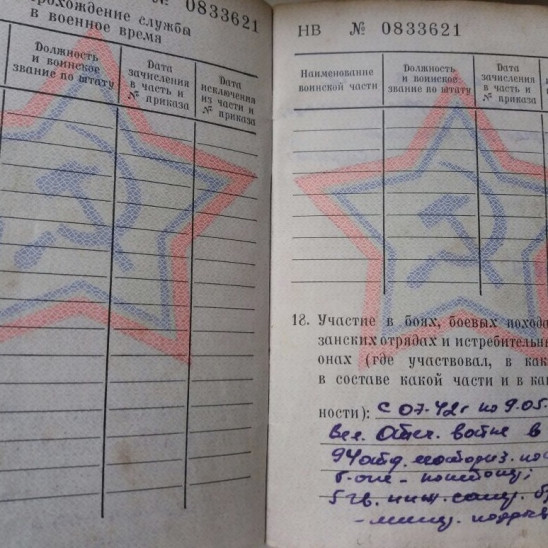 Прохождение службы № 0833621
в военное время
Должность
и воинское
звание по штату
Дата
зачисления
в часть и
№ приказа
Дата
исключения
из части и
№ приказа
НВ № 0833621
Наименование
воинской части
Должность
и воинское
звание по штату
Дата
зачисления
в часть и
№ приказа
18. Участие в боях, боевых похода
занских отрядах и истребительн
онах (где участвовал, в как
в составе какой части и в как
ности): с 07.42г по 9.05.
Вел. Отеч. войне в
94
5 гв. инж. сап. б